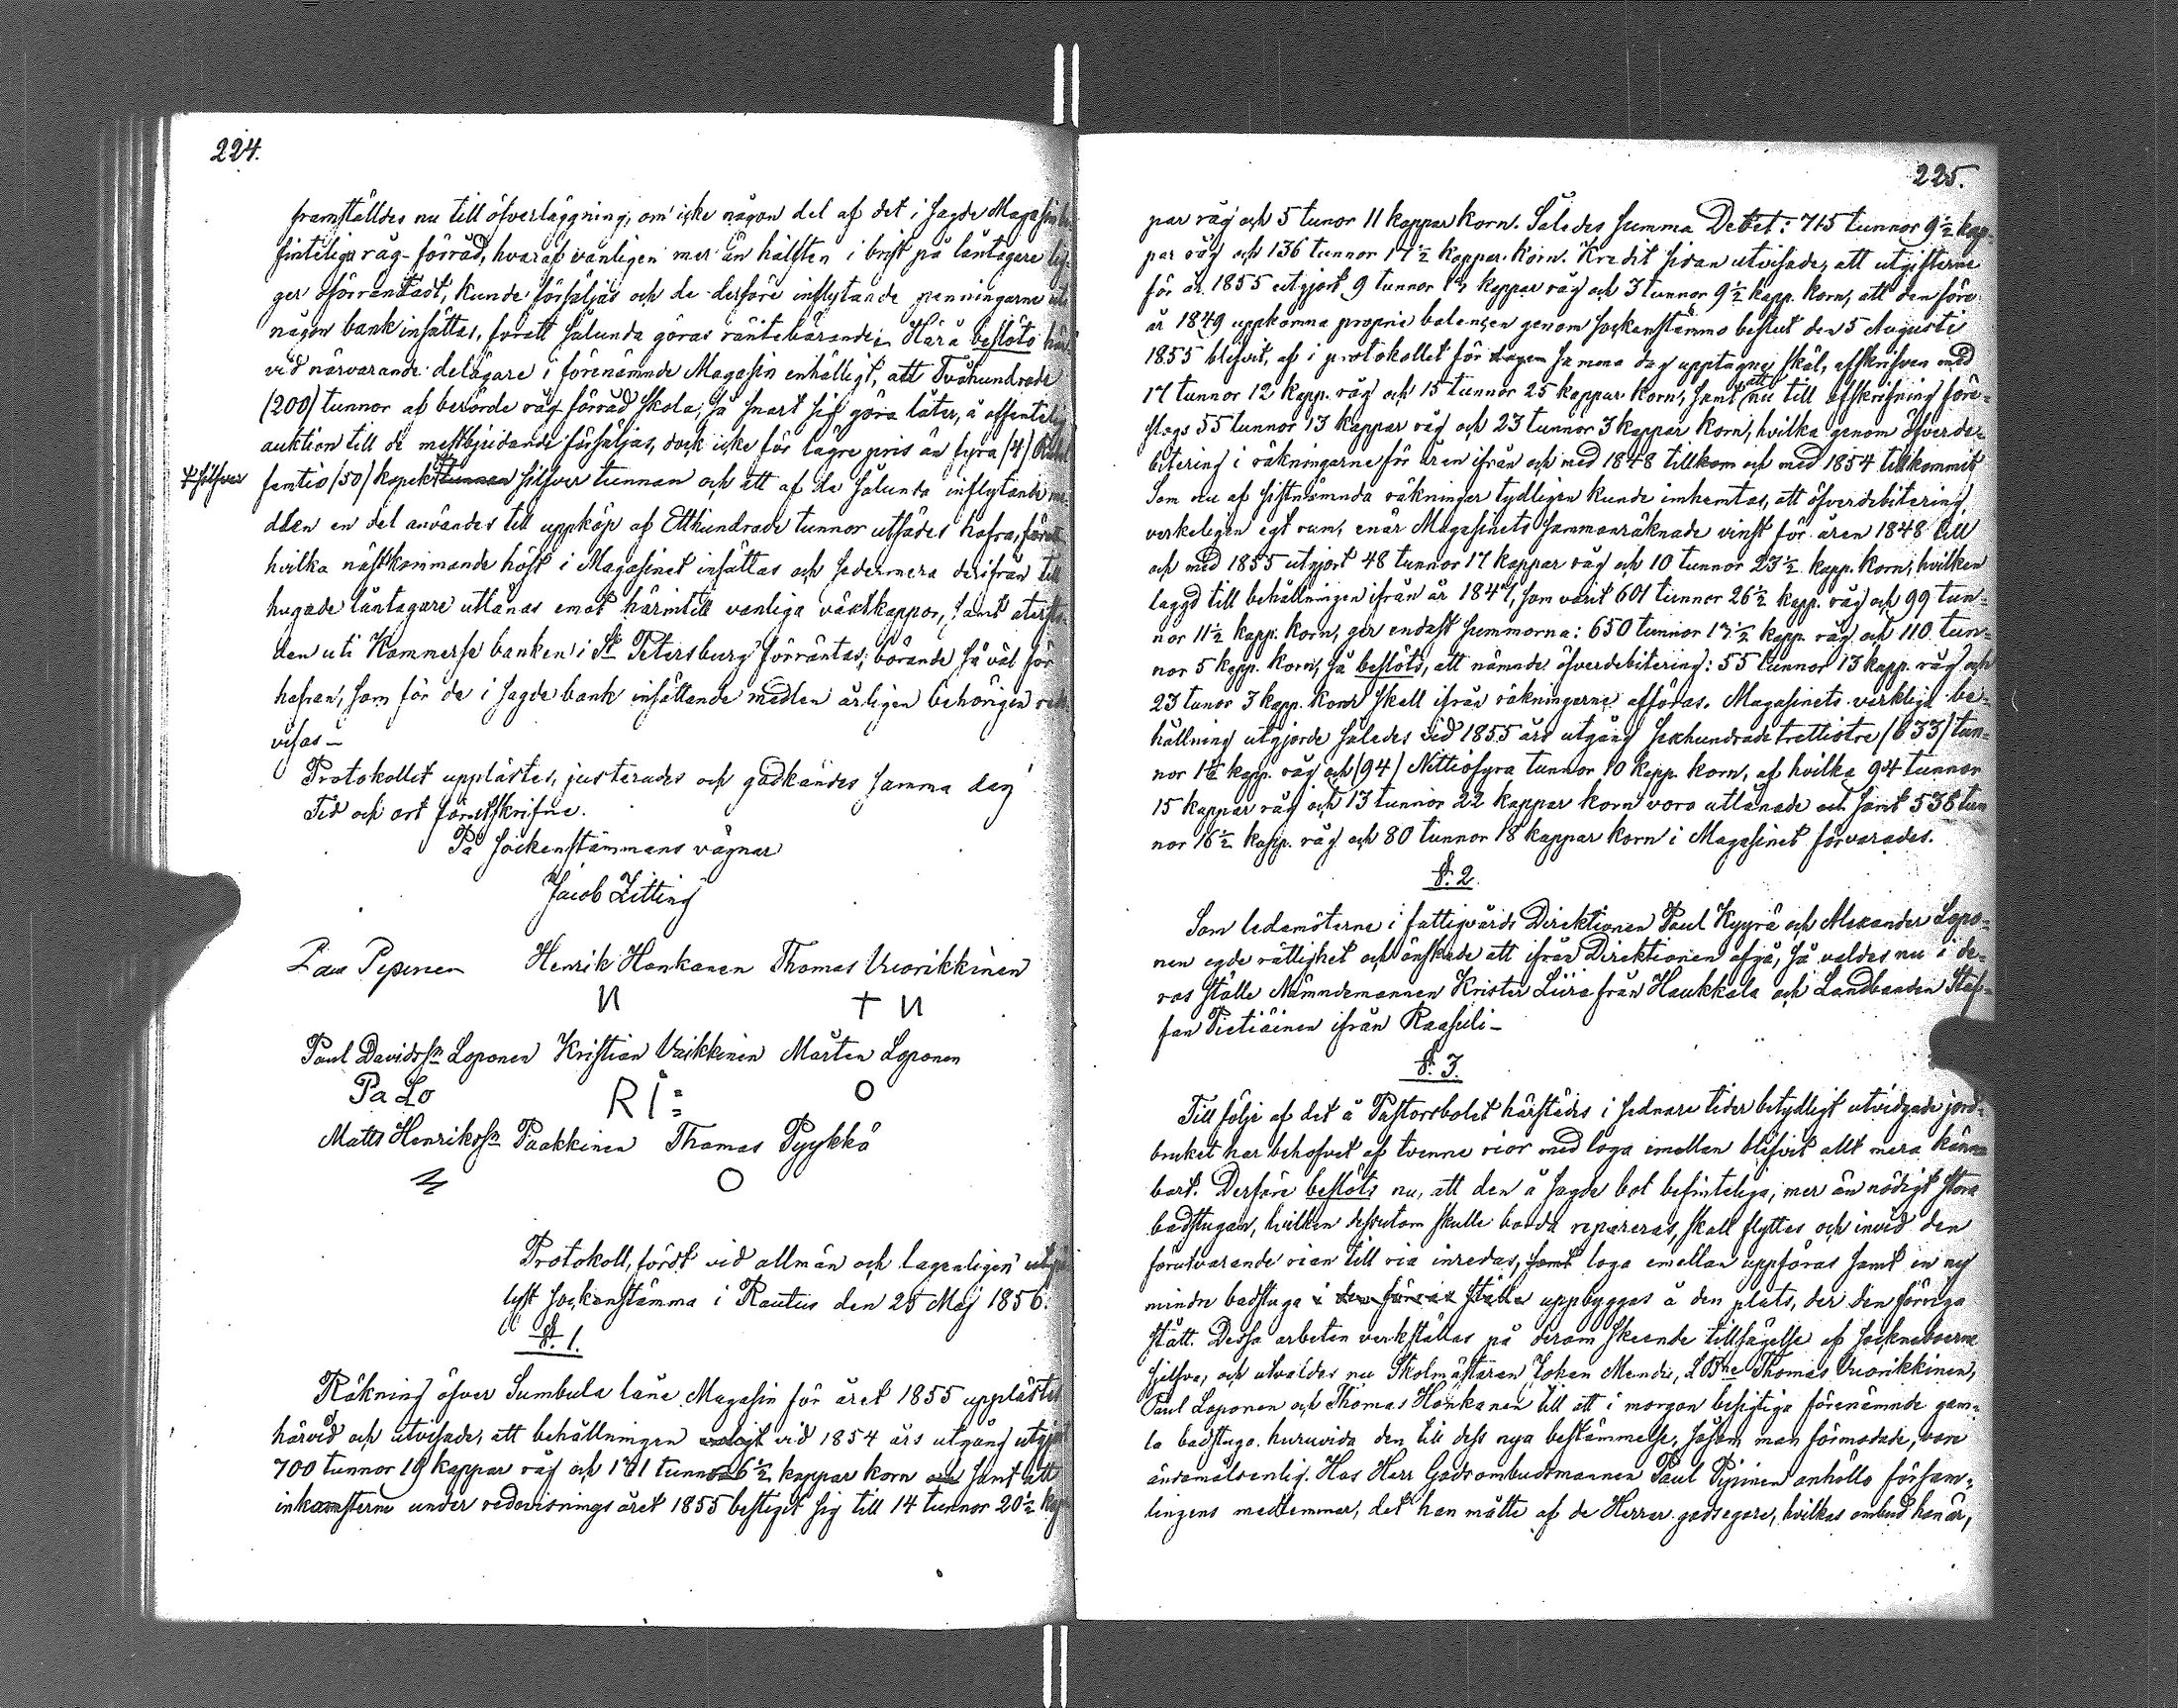 224.
framställdes nu till öfverläggning, om icke någon del af det i sagde Magasin be-
fintelige råg-förråd, hvaraf vanligen mer än hälften i brist på låntagare lig-
ger oförräntadt, kunde försäljas och de derföre inflytande penningarne uti
någon bank insättas, föratt sålunda göras räntebärande; Härå beslöto här-
vid närvarande delägare i förenämnde Magasin enhälligt, att Tvåhundrade
(200) tunnor af berörde råg förråd skola, så snart sig göra låter, å offentelig
auktion till de mestbjudande försäljas, dock icke för lägre pris än fyra (4) Rubel
silfver femtio (50) kopek tunnan silfver tunnan och att af de sålunda inflytande me-
dlen en del användes till uppköp af Etthundrade tunnor utsädes hafra,
hvilka nästkommande höst i Magasinet insättas och sedermera derifrån till
hugade låntagare utlånas emot härintill vanliga växtkappor, samt återsto-
den uti Kommerse banken i St Petersburg förräntas; börande så väl för
hafran, som för de i sagde bank insättande medlen årligen behörigen redo-
visas–
Protokollet upplästes, justerades och godkändes samma dag
Tid och ort förutskrifne.
På Sockenstämmans vägnar
Jacob Zitting
Paul Pipinen Henrik Hankanen Thomas Vuorikkinen
Paul Davidssn Loponen Kristian Vaikkinen Mårten Loponen
Pa Lo RI: O
Matts Henrikssn Paakkinen Thomas Pyykkö
O
Protokoll, fördt vid allmän och lagenligen utly-
lyst sockenstämma i Rautus den 25 Maj 1856.
§. 1.
Räkning öfver Sumbula låne Magasin för året 1855 upplästes
härvid och utvisade, att behållningen vid 1854 års utgång utgjort
700 tunnor 19 kappar råg och 131 tunnor 6½ kappar korn och samt att
inkomsterne under redovisnings året 1855 bestiget sig till 14 tunnor 20½ kap-
225.
par råg och 5 tunor 11 kappar korn. Således summa Debet: 715 tunnor 9½ kap-
par råg och 136 tunnor 17½ kappar korn. Kredit sidan utvisade, att utgifterne
för år 1855 utgjort 9 tunnor kappar råg och 3 tunnor 9½ kapp. korn, att den före
år 1849 uppkomna proprie balancen genom sockenstämmo beslut den 5 Augusti
1855 blifvit, af i protokollet för dagen samma dag upptagne skäl, afskrifven med
17 tunnor 12 kapp. råg och 15 tunnor 25 kappar korn, samt att nu till afskrifning före-
slogs 55 tunnor 13 kappar råg och 23 tunnor 3 kappar korn, hvilka genom öfverde-
bitering i räkningarne för åren ifrån och med 1848 tillkom och med 1854 tillkommit
Som nu af sistnämnda räkningar tydligen kunde inhemtas, att öfverdebitering
verkeligen egt rum, enär Magasinets sammanräknade vinst för åren 1848 till
och med 1855 utgjort 48 tunnor 17 kappar råg och 10 tunnor 23½ kapp. korn, hvilken
laggd till behållningen ifrån år 1847, som varit 601 tunnor 26½ kapp. råg och 99 tun-
nor 11½ kapp. korn, ger endast summorna: 650 tunnor 13½ kapp. råg och 110 tun-
nor 5 kapp. korn, så beslöts, att nämnde öfverdebitering: 55 tunnor 13 kapp. råg och
23 tunor 3 kapp. korn skall ifrån räkningarne afföras. Magasinets verklige be-
hållning utgjorde således vid 1855 års utgång Sexhundrade trettiotre (633) tun-
nor kapp. råg och (94) Nittiofyra tunnor 10 kapp. korn, af hvilka 94 tunnor
15 kappar råg och 13 tunnor 22 kappar korn voro utlånade och samt 538 tun
nor 16½ kapp. råg och 80 tunnor 18 kappar korn i Magasinet förvarades.
§. 2.
Som ledamöterne i fattigvårds Direktionen Paul Kyyrä och Alexander Lopo-
nen egde rättighet och önskade att ifrån Direktionen afgå, så valdes nu i de-
ras ställe Nämndemannen Krister Liira från Haukkala och Landbonden Staf-
fan Pietiäinen ifrån Raasuli–
§. 3.
Till följe af det å Pastorsbolet härstädes i sednare tider betydligt utvidgade jord-
bruket har behofvet af tvenne rior med loga emellan blifvit allt mera känn-
bart. Derföre beslöts nu, att den å sagde bol befinteliga, mer än nödigt stora
badstugan, hvilken dessutom skulle borda repareras, skall flyttas och invid den
förutvarande rian till ria inredas, samt loga emellan uppföras samt en ny
mindre badstuga i den förras ställe uppbyggas å den plats, der den förriga
stått. Dessa arbeten verkställas på derom skeende tillsägelse af sockneboerne
sjelfva, och utvaldes nu Skolmästaren Johan Mendu, LBne Thomas Vuorikkinen,
Paul Loponen och Thomas Hankanen till att i morgon besigtiga förenämnde gam-
la badstuga huruvida den till dess nya bestämmelse, såsom man förmodade, vore
ändamålsenlig. Hos Herr Godsombudsmannen Paul Pipinen anhöllo försam-
lingens medlemmar, det han måtte af de Herrar godsegare, hvilkas ombud han är,